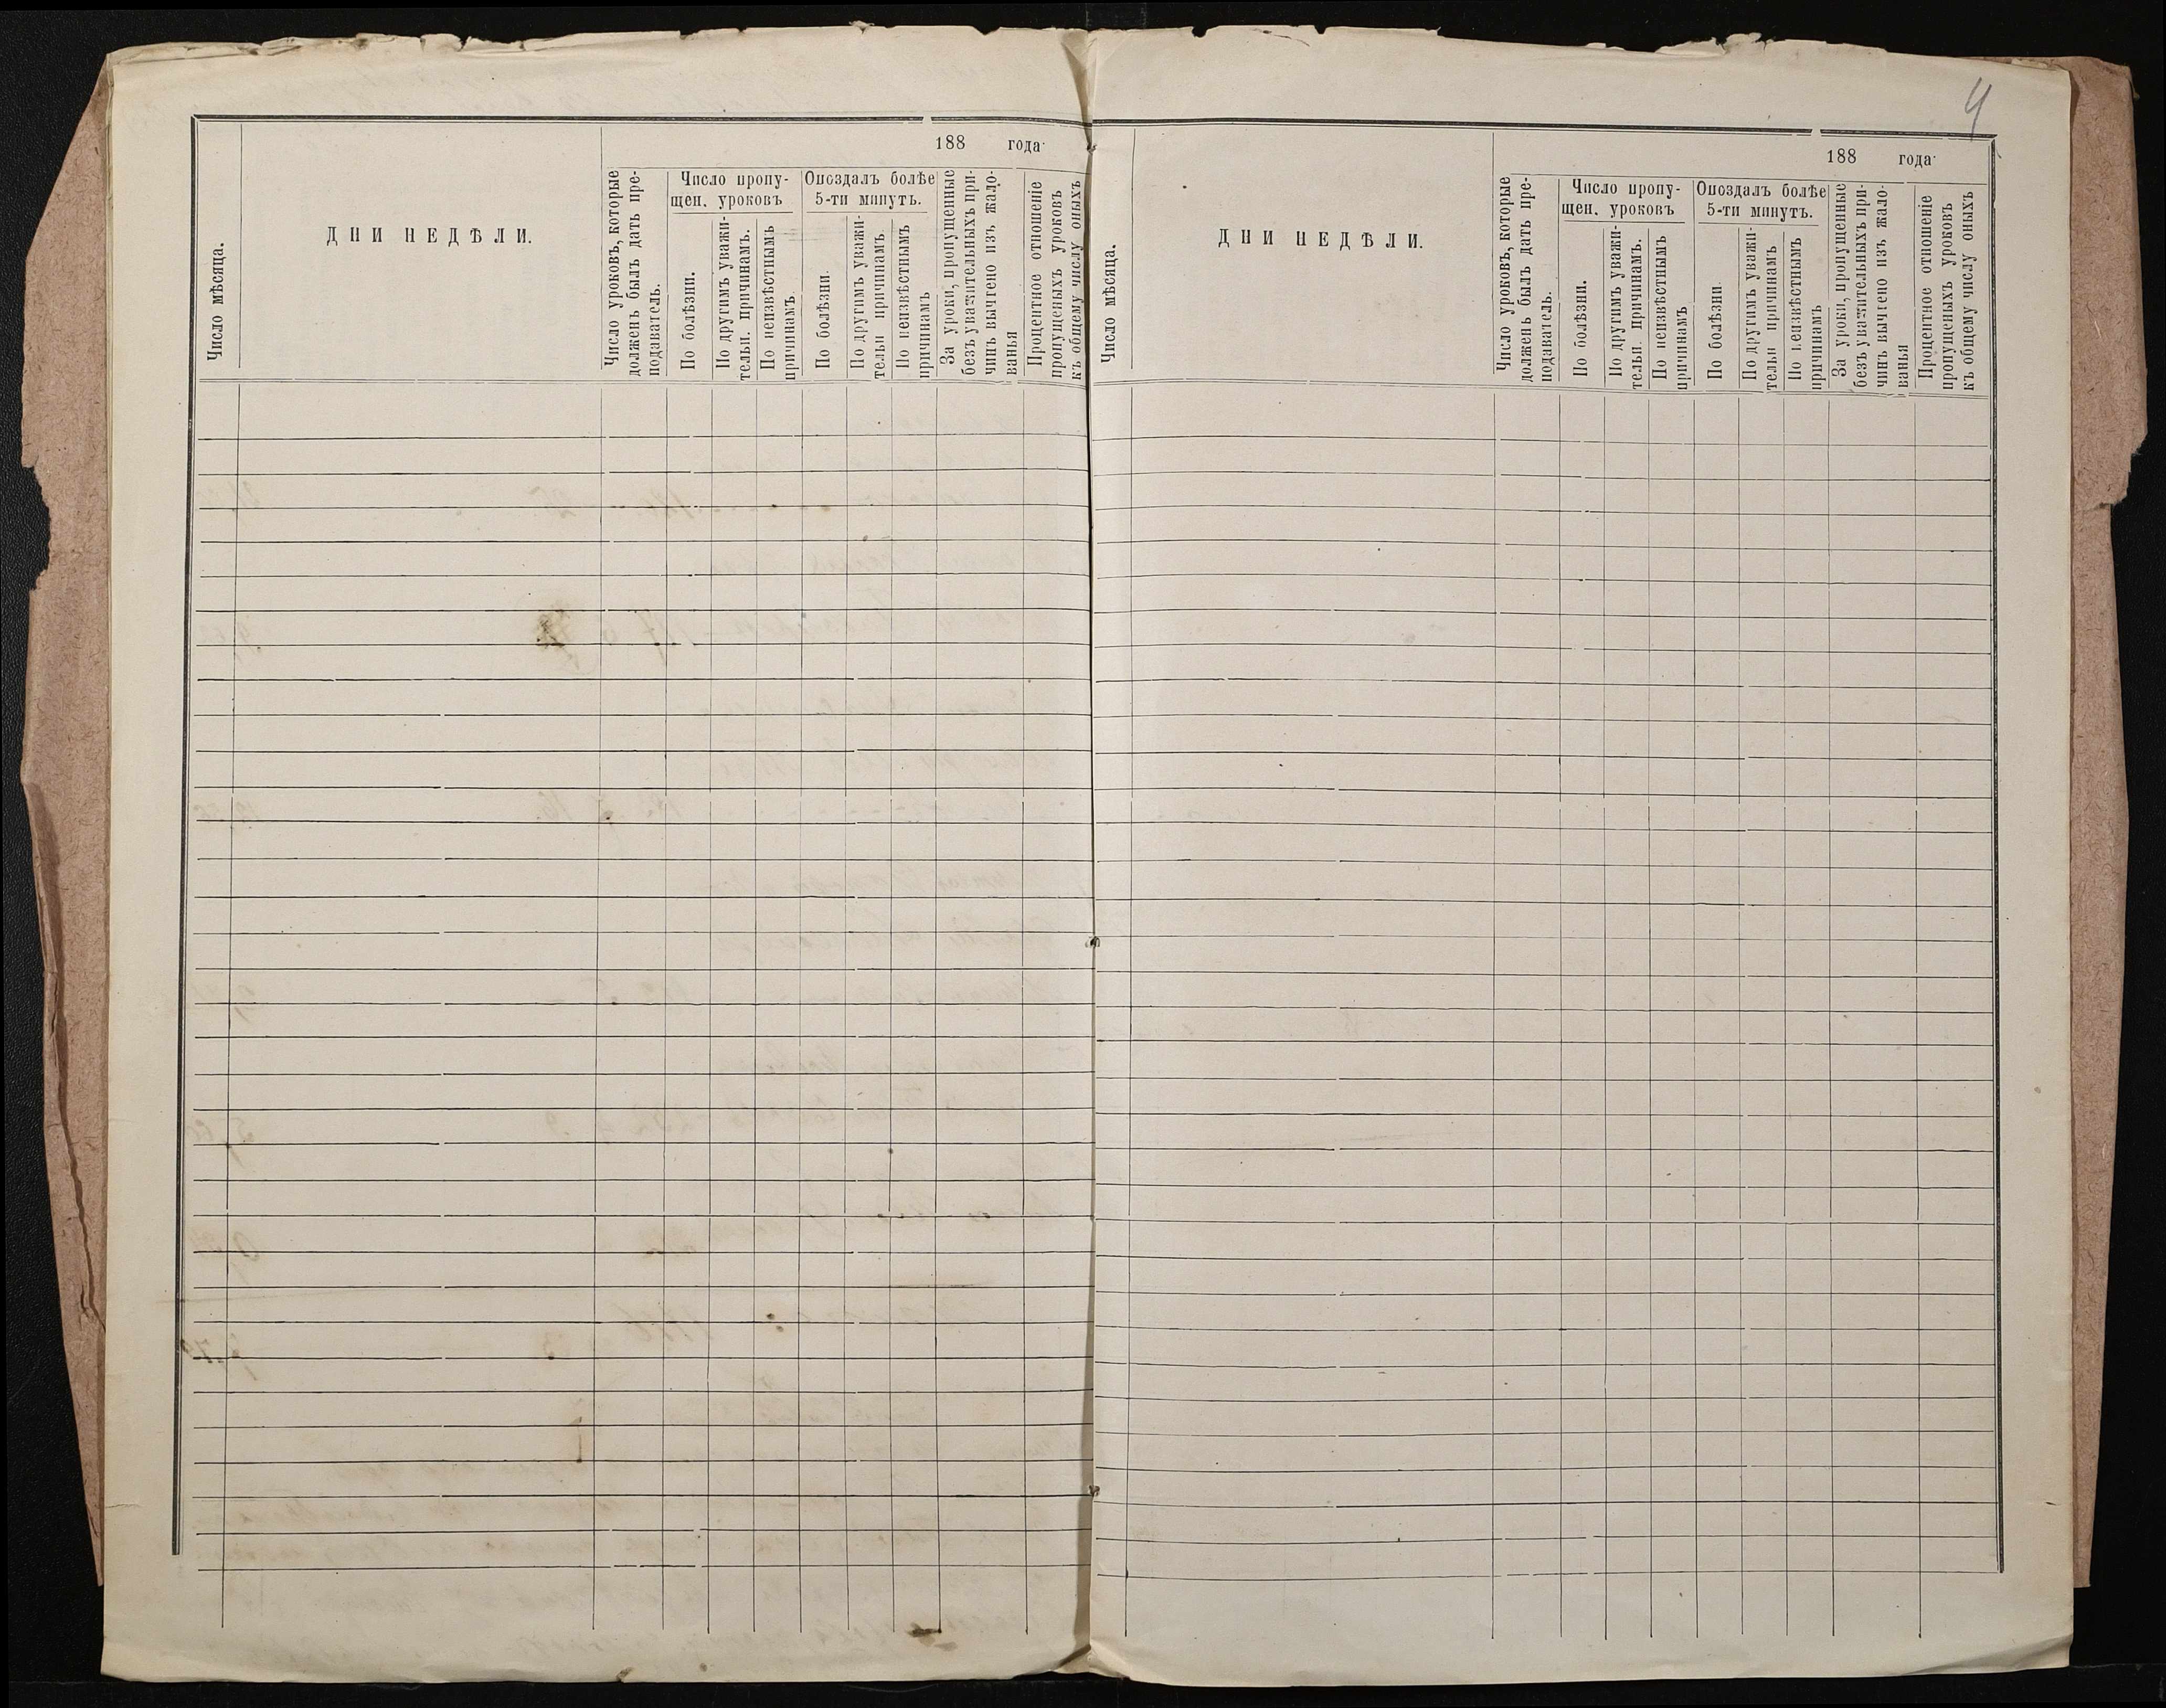 4
188 года
Число мѣсяца.
ДНИ НЕДѢЛИ.
Число уроковъ, которые
долженъ былъ дать пре-
подаватель.
Число пропу-
щен. уроковъ
По болѣзни.
По другимъ уважи-
тельн. причинамъ.
По неизвѣстнымъ
причинамъ
Опоздалъ болѣе
5-ти минутъ.
По болѣзни.
По другимъ уважи-
тельн причинамъ.
По неизвѣстнымъ
причинамъ
За уроки, пропущенные
безъ уважительныхъ при-
чинъ вычтено изъ жало-
ванья
Процентное отношеніе
пропущеныхъ уроковъ
къ общему числу оныхъ
188 года
Число мѣсяца.
ДНИ НЕДѢЛИ.
Число уроковъ, которые
долженъ былъ дать пре-
подаватель.
Число пропу-
щен. уроковъ
По болѣзни.
По другимъ уважи-
тельн. причинамъ.
По неизвѣстнымъ
причинамъ
Опоздалъ болѣе
5-ти минутъ.
По болѣзни.
По другимъ уважи-
тельн причинамъ
По неизвѣстнымъ
причинамъ
За уроки, пропущенные
безъ уважительныхъ при-
чинъ вычтено изъ жало-
ванья
Процентное отношеніе
пропущеныхъ уроковъ
къ общему числу оныхъ